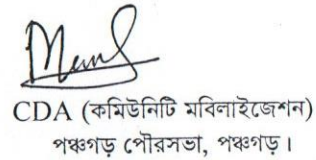 CDA (কমিউনিটি মবিলাইজেশন)
পঞ্চগড় পৌরসভা, পঞ্চগড়।